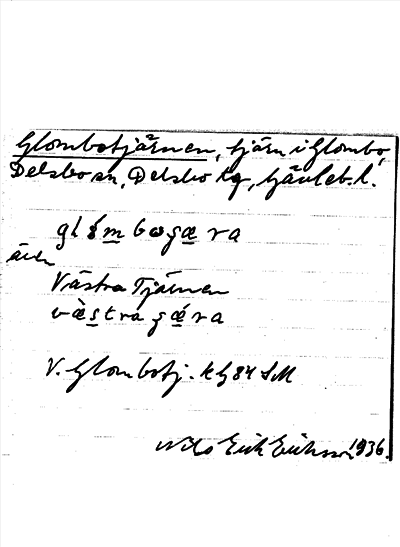 Glombotjärnen, tjärn i Glombo,
Delsbo sn, Delsbo tg, Gävleb. l.
glómbogæra
även
Västra Tjärnen
væ̀stra gǽra
V. Glombotj. k G84 SM
Nils Erik Eriksson 1936.